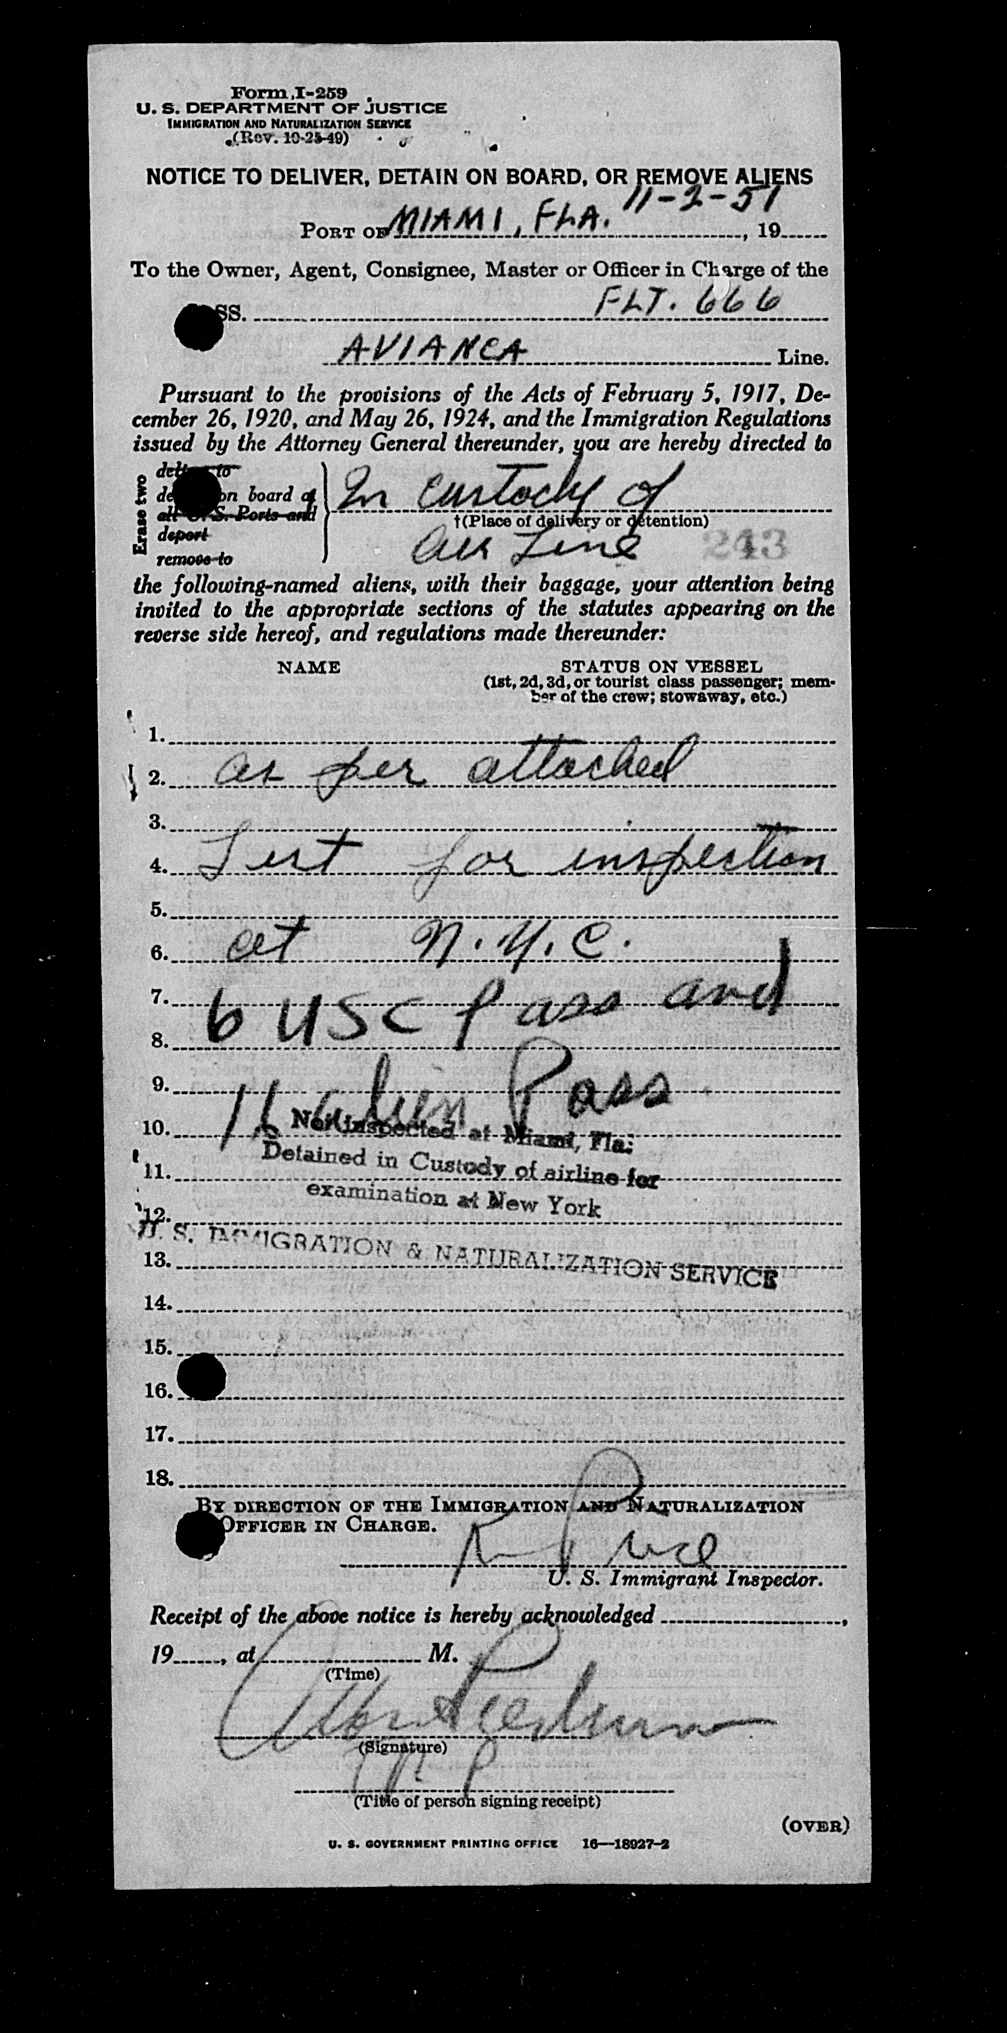 Form I-259
U. S. DEPARTMENT OF JUSTICE
IMMIGRATION AND NATURALIZATION SERVICE
(Rev. 10-25-49)
NOTICE TO DELIVER, DETAIN ON BOARD, OR REMOVE ALIENS
11-2-51
PORT OF MIAMI, FLA. , 19
To the Owner, Agent, Consignee, Master or Officer in Charge of the
SS. FLT. 666
AVIANCA Line.
Pursuant to the provisions of the Acts of February 5, 1917, De-
cember 26, 1920, and May 26, 1924, and the Immigration Regulations
issued by the Attorney General thereunder, you are hereby directed to
Erase two
deliver to
detain on board at In custody of
all U. S. Ports and
†(Place of delivery or detention)
deport Air Line 243
remove to
the following-named aliens, with their baggage, your attention being
invited to the appropriate sections of the statutes appearing on the
reverse side hereof, and regulations made thereunder:
NAME STATUS ON VESSEL
(1st, 2d, 3d, or tourist class passenger; mem-
ber of the crew; stowaway, etc.)
1.
2. as per attached
3.
4. List for inspection
5.
6. at N.Y.C.
7. 6 USC Pass and
8.
9. 16 alien Pass
10. Not inspected at Miami, Fla:
Detained in Custody of airline for
11.
examination at New York
12.
U. S. IMMIGRATION & NATURALIZATION SERVICE
13.
14.
15.
16.
17.
18.
BY DIRECTION OF THE IMMIGRATION AND NATURALIZATION
OFFICER IN CHARGE.
U. S. Immigrant Inspector.
Receipt of the above notice is hereby acknowledged ,
19 , at M.
(Time)
(Signature)
(Title of person signing receipt)
(OVER)
U. S. GOVERNMENT PRINTING OFFICE 16—18927-2